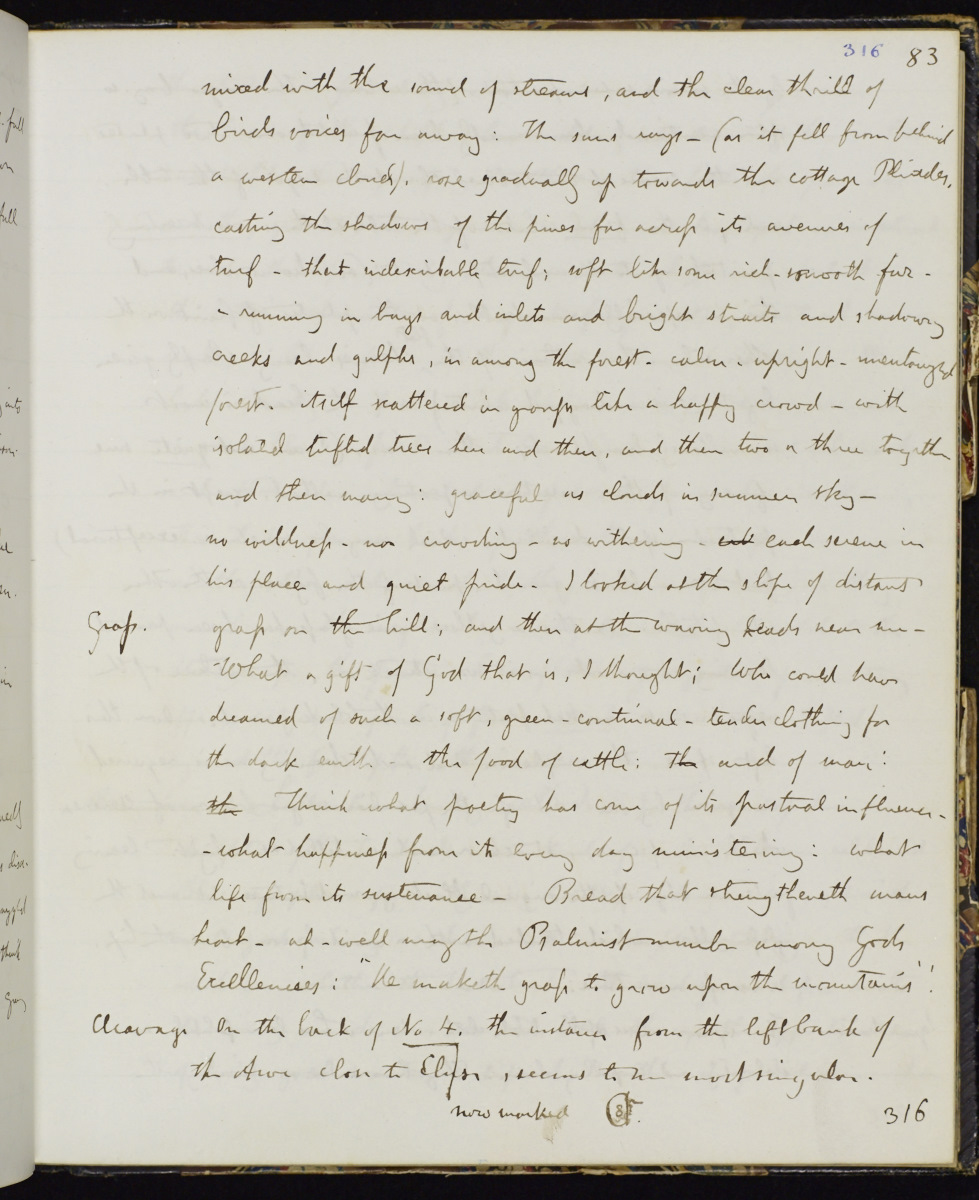 316 83
mixed with the sound of streams, and the clear thrill of
birds voices far away: The suns rays - (as it fell from behind
a western cloud), rose gradually up towards the cottage
casting the shadows of the pines far across its avenues of
turf - that indescribable turf; soft like some rich - smooth fur -
- running in bays and inlets and bright straits and shadowy
creeks and gulphs, in among the forest - calm - upright - unentangled
forest - itself scattered in groups like a happy crowd - with
isolated tufted trees here and there, and then two or three together
and then many: graceful as clouds in summer sky -
no wildness - no crowding - no withering - each serene in
his place and quiet pride. I looked at the slope of distant
Grass. grass on the hill; and then at the waving heads near me -
- What a gift of God that is, I thought; Who could have
dreamed of such a soft, green - continual - tender clothing for
the dark earth - the food of cattle: the and of man:
the Think what poetry has come of its pastoral influence -
- what happiness from its every day ministering: what
life from its sustenance - Bread that strengtheneth mans
heart - ah - well may the Psalmist number among Gods
Excellencies: "He maketh grass to grow upon the mountains"!
Cleavage On the back of No 4. the instance from the left bank of
the Arve close to , seems to me most singular.
now marked 8.
316